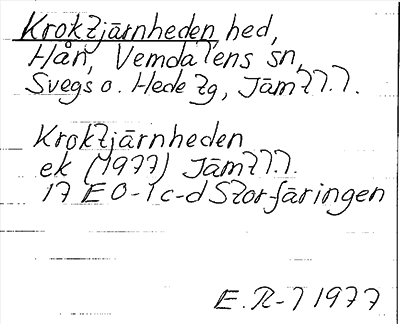 Kroktjärnheden hed,
Hån, Vemdalens sn,
Svegs o. Hede tg, Jämtl.l.
Kroktjärnheden
ek (1977) Jämtl.l.
17 E 0-1 c-d Storfäringen
E.R-l 1977